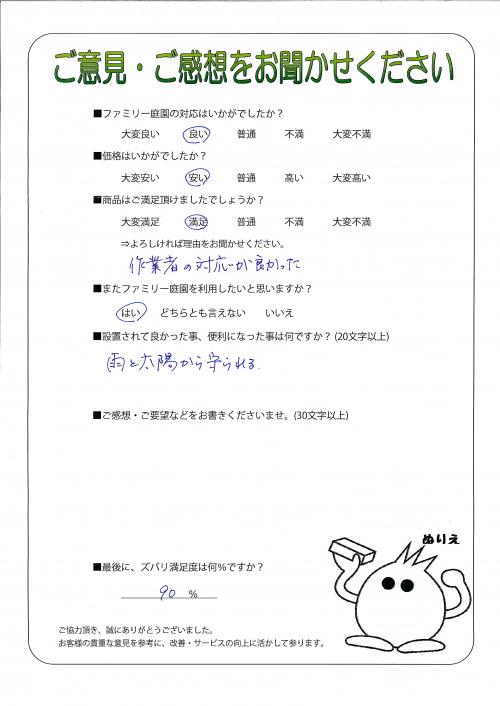 ご意見・ご感想をお聞かせください
■ファミリー庭園の対応はいかがでしたか？
大変良い　良い　普通　不満　大変不満
■価格はいかがでしたか？
大変安い　安い　普通　高い　大変高い
■商品はご満足頂けましたでしょうか？
大変満足　満足　普通　不満　大変不満
⇒よろしければ理由をお聞かせください。
作業者の対応が良かった
■またファミリー庭園を利用したいと思いますか？
はい　どちらとも言えない　いいえ
■設置されて良かった事、便利になった事は何ですか？ (20文字以上)
雨と太陽から守られる.
■ご感想・ご要望などをお書きくださいませ。(30文字以上)
ぬりえ
■最後に、ズバリ満足度は何%ですか？
90 %
ご協力頂き、誠にありがとうございました。
お客様の貴重な意見を参考に、改善・サービスの向上に活かして参ります。